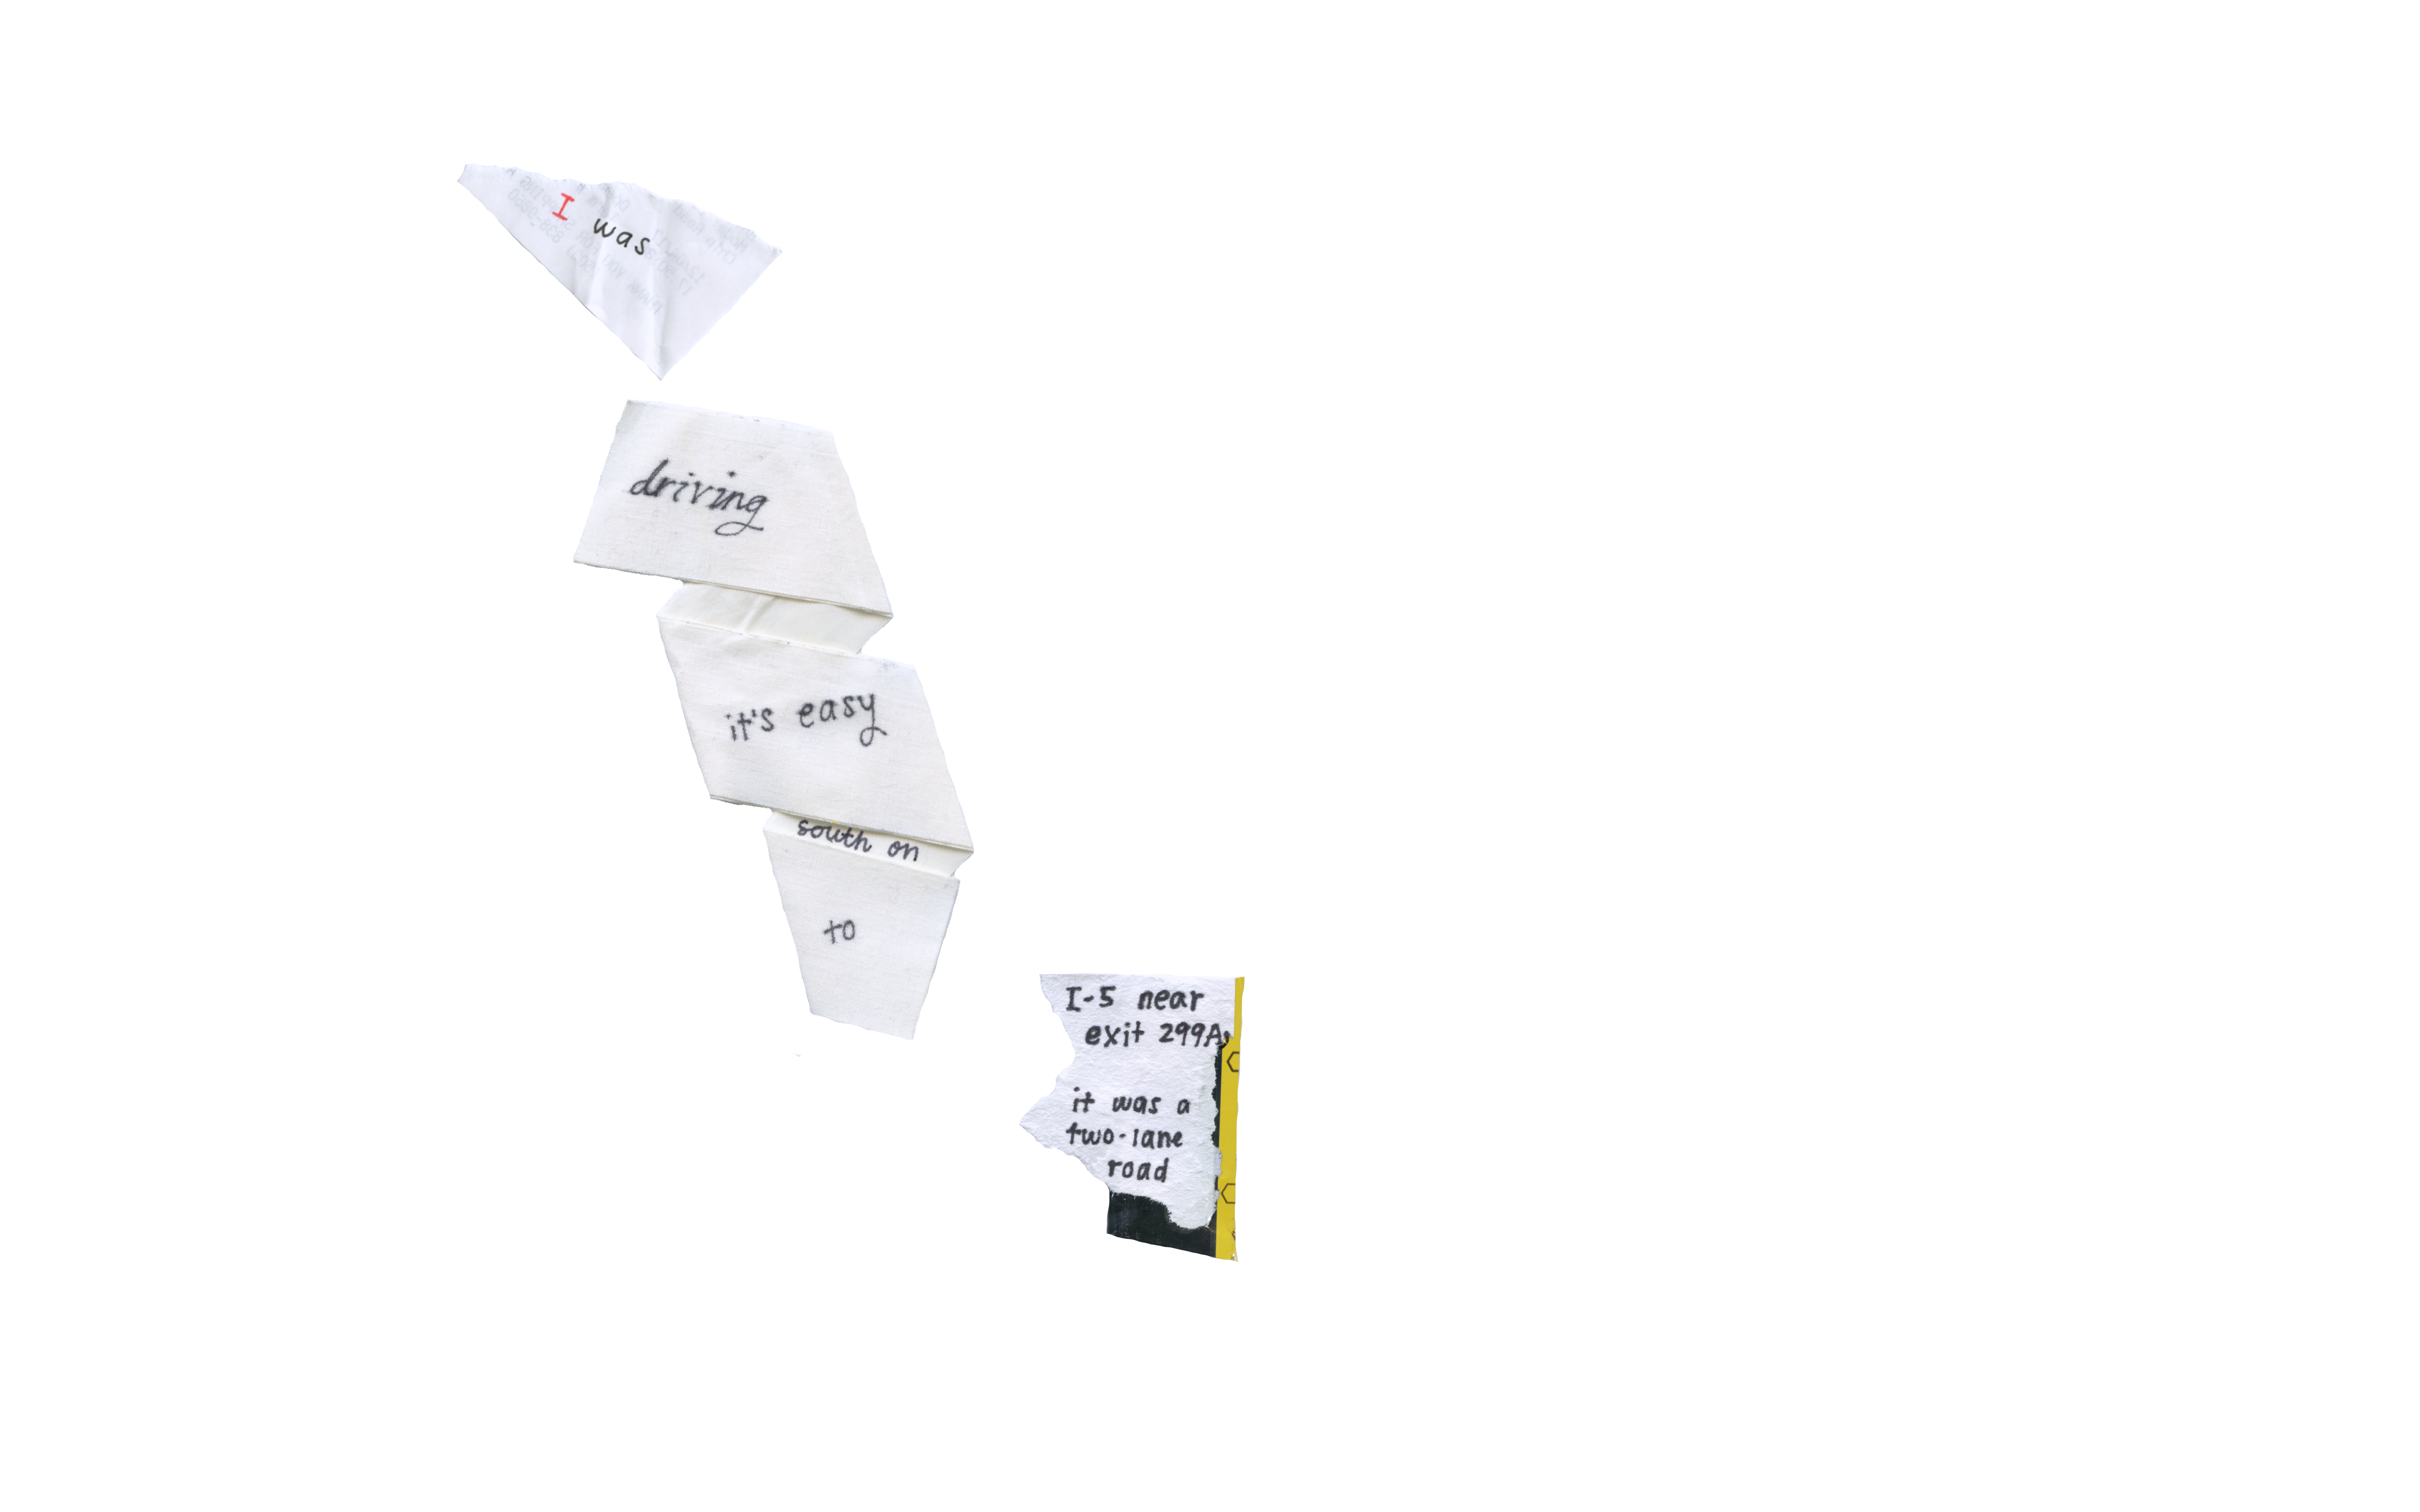 I was
driving
it's easy
south on
to
I-5 near
exit 299A,
it was a
two-lane
road